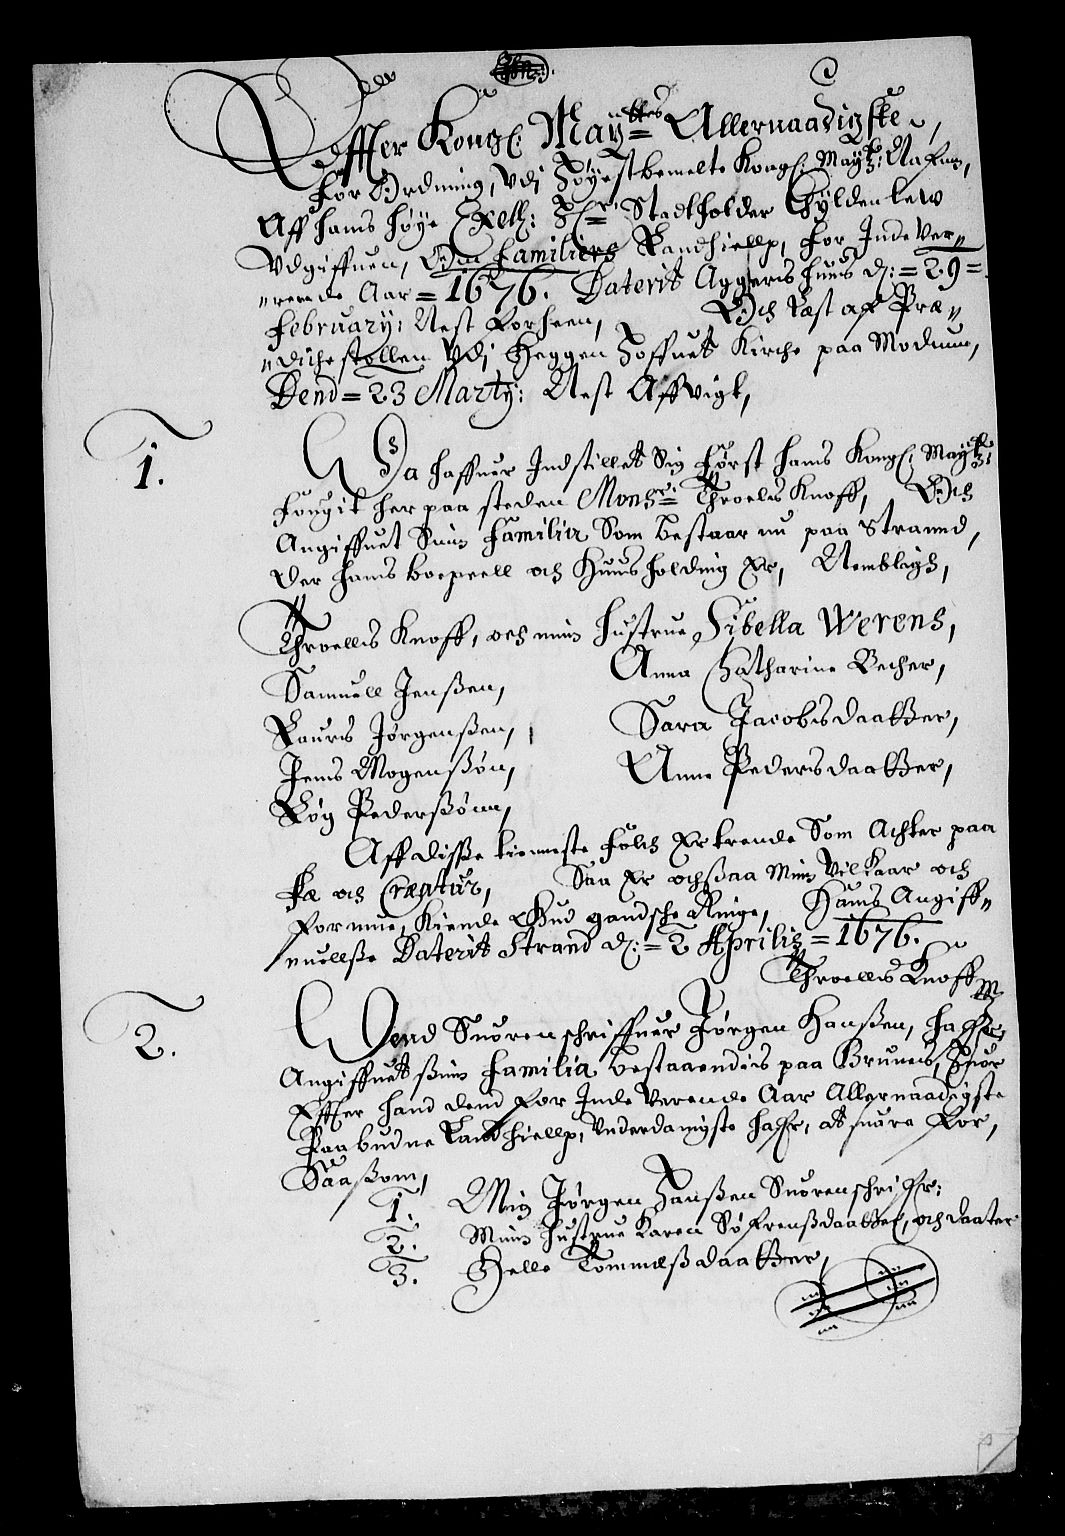 Effter Kongl: May:ttes Allernaadigste,
Forordning, Udj Høyestbemelte Kongl: Maytz: Nafn,
Aff hans høye Excell: Hr: Stadtholder Gyldenlew
Udgiffuen, Om Familiers Landhielp, for Inde Ver„
„rende Aar = 1676. Daterit Aggershuus d: = 29 =
February: Nest forheen, Och Læst af Præ„
„dichestollen Udj Heggen Hoffuet Kirche paa Modum,
Dend = 23 Marty: Nest Affvigt,
1. Da haffuer Indstillet Sig Først hans Kongl: Maytz:
Fougit her paa steden Monsr: Throels Knoff, Och
Angiffuet Sinn Familia Som bestaar nu paa Strannd,
Ver hans boepæll och Huusholding Er, Nemblich,
Throells Knoff, och min hustrue Sibella Werens,
Samuell Jenßen, Anna Chatharine Becher,
Laurs Jørgenßen, Sara Jacobsdaatter,
Jens Mogenßøn, Anne Pedersdaatter,
Roy Pederßønn,
Aff disße tienneste Folch Er trende Som Achter paa
Fæ och Creatur, Saa Er ochßaa Min Vilkaar och
Formue, Kiende Gud gandsche Ringe, Hans Angiff„
„uellße Daterit Strand d: = 2 Aprilis = 1676.
Throells Knoff
2. Dend Suorenschriffuer Jørgen Hanßen, haffr,
Angiffuet ßinn Familia bestaaendis paa Brunes, Huor
Effter hand dend For Inde Verende Aar Allernaadigste
Paabudne Landhielp, Underdanigste haffr, at suare For,
Saaßom,
1. Mig Jørgen Hanßen Suorenschrifr:
2. Minn Hustrue Karen Søfrenßdaatter, och daater
3. Helle Tommeßdaatter,